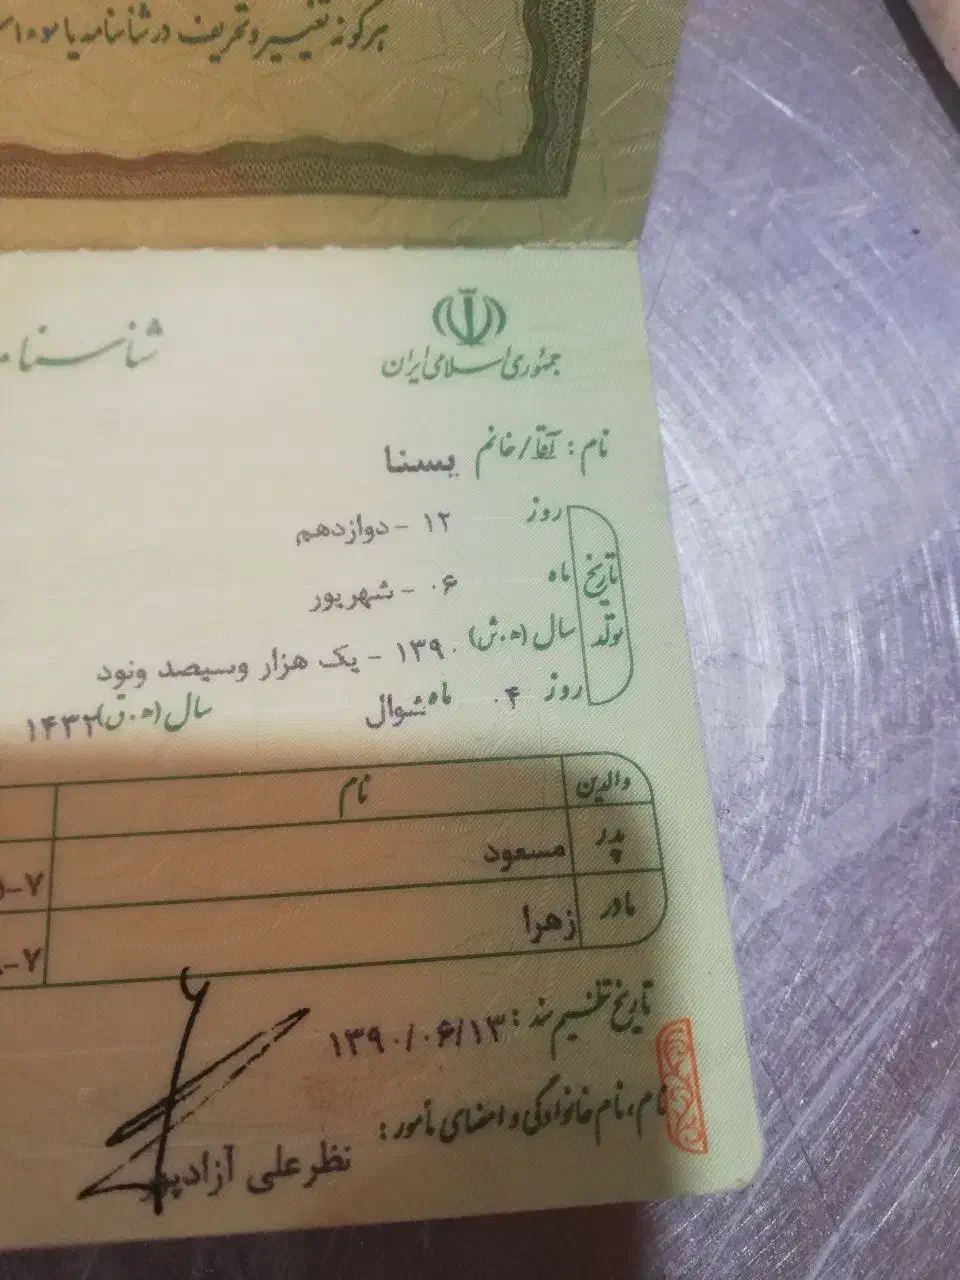 هرگونه تغییر و تحریف در شناسنامه یا سوء
جمهوری اسلامی ایران
نام : آقا/خانم یسنا
تاریخ تولد
روز ۱۲ - دوازدهم
ماه ۰۶ - شهریور
سال (ه.ش) ۱۳۹۰ - یک هزار وسیصد ونود
روز ۰۴ ماه شوال سال (ه.ق) ۱۴۳۲
والدین نام
پدر مسعود
مادر زهرا
تاریخ تنظیم سند : ۱۳۹۰/۰۶/۱۳
نام، نام خانوادگی و امضای مأمور :
نظرعلی آزادپور